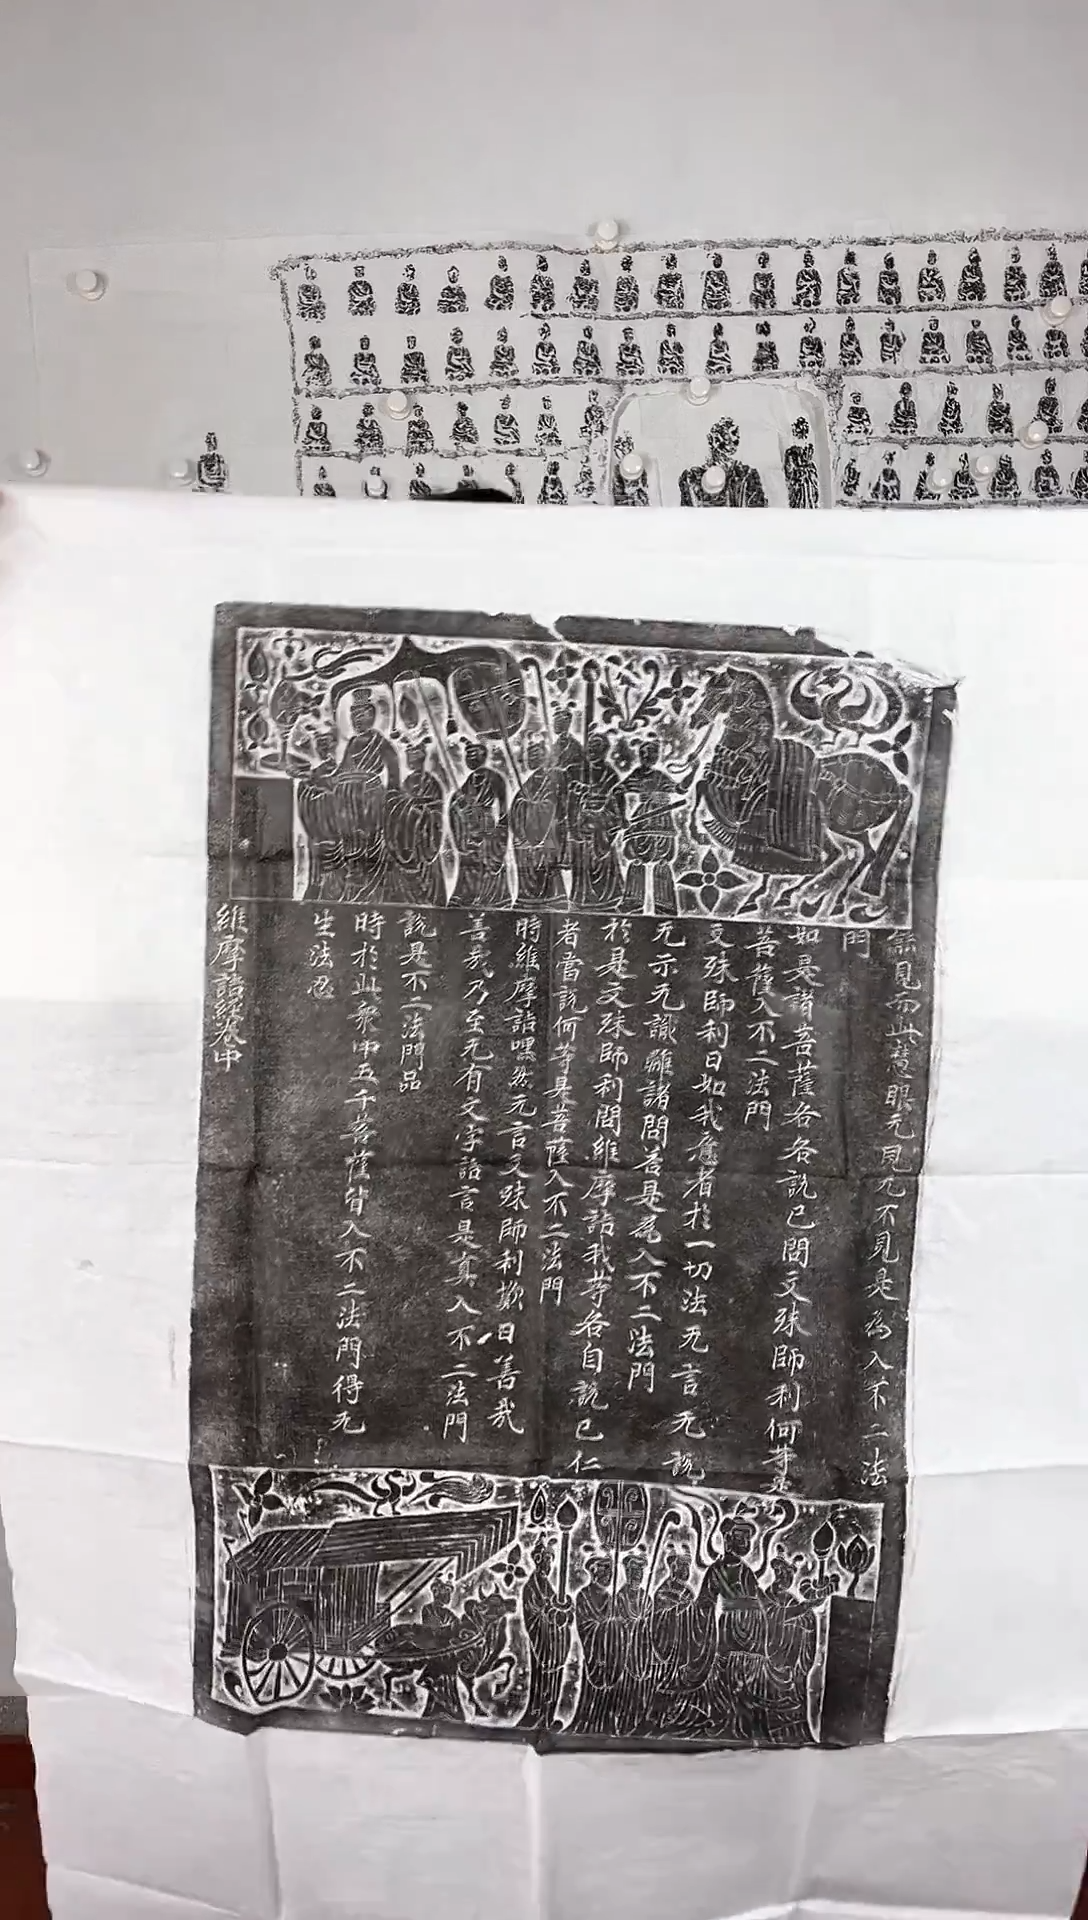 無見而此慧眼无見无不見是為入不二法
門
如是諸菩薩各各説已問文殊師利何等是
菩薩入不二法門
文殊師利曰如我意者於一切法无言无説
无示无識離諸問荅是為入不二法門
於是文殊師利問維摩詰我等各自説已仁
者當説何等是菩薩入不二法門
時維摩詰嘿然无言文殊師利歎曰善哉
善哉乃至无有文字語言是真入不二法門
説是不二法門品
時於此衆中五千菩薩皆入不二法門得无
生法忍
維摩詰經卷中